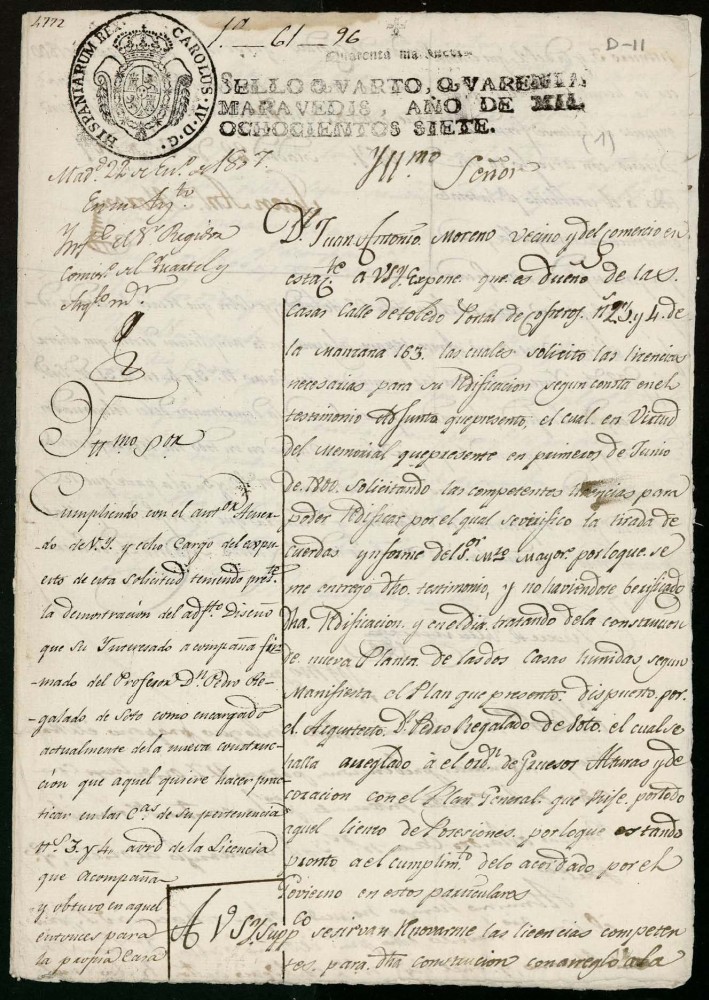 4772
1ª 61 96
D-11
HISPANIARUM REX CAROLUS IV D G
Quarenta maravedis
SELLO QVARTO, QVARENTA
MARAVEDIS, AÑO DE MIL
OCHOCIENTOS SIETE.
(1)
Madd 22 de Eno de 1807.
En su Aytto
Ynfe el Sr Regidor
Comisº del Quartel y
Arqto mor
Yllmo Señor
Dn Juan Antonio Moreno Vecino y del comercio en
esta Cte a VSY. Expone que es dueño de las
Casas Calle de toledo Portal de Cofreros nº 2, 3, y 4. de
la Manzana 163. las cuales solicito las licencias
necesarias para su Redificacion segun consta en el
testimonio Adjunto que presento, el cual en Virtud
del Memorial que presente en primeros de Junio
de 180. Solicitando las competentes licencias para
poder Redificar por el qual se verifico la tirada de
cuerdas y ynforme del Sor Mro Mayor. por lo que se
me entrego dho. testimonio, y no haviendose berificado
dha. Redificacion y en el dia tratando de la construccion
de nueva Planta de las dos Casas hunidas segun
Manifiesta el Plan que presento dispuesto por
el Arquitecto Dn Pedro Regalado de Soto. el cual se
halla arreglado à el ordn de Gruesos Alturas y de
coracion con el Plan General que Rije por todo
aquel lienzo de Posesiones. por lo que estando
pronto a el cumplimto de lo acordado por el
Govierno en estos particulares
A V.S.Y. Suppco se sirvan Renovarme las licencias competen
tes. para dha construcion con arreglo a la
Yllmo Sor
Cumpliendo con el antor Acuer-
do de V.Y. y echo Cargo del expu-
esto de esta solicitud teniendo preste
la demostracion del adjto Diseño
que su Ynteresado acompaña fir-
mado del Profesor Dn Pedro Re-
galado de Soto como encargado
actualmente de la nueva construc-
ción que aquel quiere hacer prac-
ticar en las Cas de su pertenencia
nos 3. y 4. avrd de la Licencia
que acompaña
y obtuvo en aquel
entonces para
la propia Casa